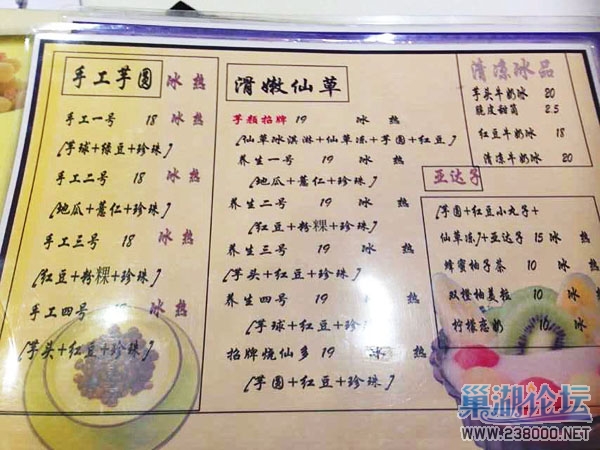 手工芋圆 冰 热
手工一号 18 冰 热
[芋球+绿豆+珍珠]
手工二号 18 冰 热
[地瓜+薏仁+珍珠]
手工三号 18 冰 热
[红豆+粉粿+珍珠]
手工四号 冰 热
[芋头+红豆+珍珠]
滑嫩仙草
芋颜招牌 19 冰 热
[仙草冰淇淋+仙草冻+芋圆+红豆]
养生一号 19 冰 热
[地瓜+薏仁+珍珠]
养生二号 19 冰 热
[红豆+粉粿+珍珠]
养生三号 19 冰 热
[芋头+红豆+珍珠]
养生四号 19 冰 热
[芋球+红豆+珍珠]
招牌烧仙多 19 冰 热
[芋圆+红豆+珍珠]
清凉冰品
芋头牛奶冰 20
脆皮甜筒 2.5
红豆牛奶冰 18
清凉牛奶冰 20
亚达子
[芋圆+红豆小丸子+
仙草冻]+亚达子 15 冰 热
蜂蜜柚子茶 10 冰 热
双橙柚美粒 10 冰
柠檬恋奶 10 冰
巢湖论坛
WWW.238000.NET